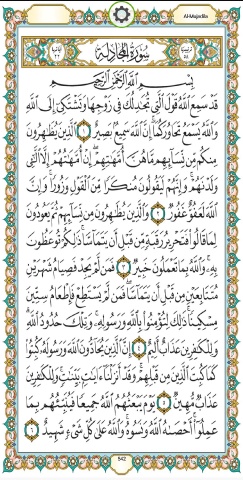 Al-Mujadila
سُورَةُ المُجَادلَةِ
بِسْمِ اللَّهِ الرَّحْمَٰنِ الرَّحِيمِ
قَدْ سَمِعَ اللَّهُ قَوْلَ الَّتِي تُجَادِلُكَ فِي زَوْجِهَا وَتَشْتَكِي إِلَى اللَّهِ
وَاللَّهُ يَسْمَعُ تَحَاوُرَكُمَا إِنَّ اللَّهَ سَمِيعٌ بَصِيرٌ ١ الَّذِينَ يُظَاهِرُونَ
مِنكُم مِّن نِّسَائِهِم مَّا هُنَّ أُمَّهَاتِهِمْ إِنْ أُمَّهَاتُهُمْ إِلَّا اللَّائِي
وَلَدْنَهُمْ وَإِنَّهُمْ لَيَقُولُونَ مُنكَرًا مِّنَ الْقَوْلِ وَزُورًا وَإِنَّ
اللَّهَ لَعَفُوٌّ غَفُورٌ ٢ وَالَّذِينَ يُظَاهِرُونَ مِن نِّسَائِهِمْ ثُمَّ يَعُودُونَ
لِمَا قَالُوا فَتَحْرِيرُ رَقَبَةٍ مِّن قَبْلِ أَن يَتَمَاسَّا ذَٰلِكُمْ تُوعَظُونَ
بِهِ وَاللَّهُ بِمَا تَعْمَلُونَ خَبِيرٌ ٣ فَمَن لَّمْ يَجِدْ فَصِيَامُ شَهْرَيْنِ
مُتَتَابِعَيْنِ مِن قَبْلِ أَن يَتَمَاسَّا فَمَن لَّمْ يَسْتَطِعْ فَإِطْعَامُ سِتِّينَ
مِسْكِينًا ذَٰلِكَ لِتُؤْمِنُوا بِاللَّهِ وَرَسُولِهِ وَتِلْكَ حُدُودُ اللَّهِ
وَلِلْكَافِرِينَ عَذَابٌ أَلِيمٌ ٤ إِنَّ الَّذِينَ يُحَادُّونَ اللَّهَ وَرَسُولَهُ كُبِتُوا
كَمَا كُبِتَ الَّذِينَ مِن قَبْلِهِمْ وَقَدْ أَنزَلْنَا آيَاتٍ بَيِّنَاتٍ وَلِلْكَافِرِينَ
عَذَابٌ مُّهِينٌ ٥ يَوْمَ يَبْعَثُهُمُ اللَّهُ جَمِيعًا فَيُنَبِّئُهُم بِمَا
عَمِلُوا أَحْصَاهُ اللَّهُ وَنَسُوهُ وَاللَّهُ عَلَىٰ كُلِّ شَيْءٍ شَهِيدٌ ٦
542